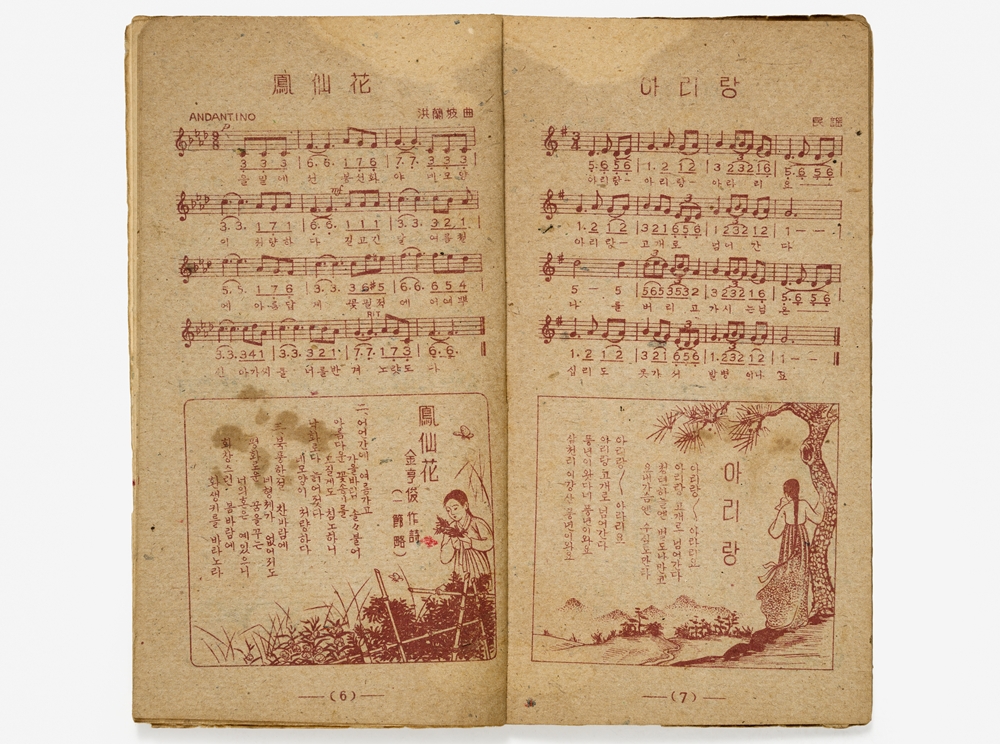 鳳仙花
ANDANTINO
洪蘭坡 曲
3 3 3 | 6. 6. 1 7 6 | 7. 7. 3 3 3
울밑에 선 봉선화 야 네모양
mf
3. 3. 1 7 1 | 6. 6. 1 1 1 | 3. 3. 3 2 1
이 처량하 다 길고긴 날 여름철
5. 5. 1 7 6 | 3. 3. 3 6 #5 | 6. 6. 6 5 4
에 아름답 게 꽃필적 에 어여뿐
RIT
3. 3. 3 4 1 | 3. 3. 3 2 1 | 7. 7. 1 7 3 | 6. 6.
인 아가씨들 너를반 겨 놀았도 다
鳳仙花
金亨俊 作詩
(一節略)
二、어언간에 여름가고
가을바람 솔솔불어
아름다운 꽃송이를
모질게도 침노하니
낙화로다 늙어졌다
네모양이 처량하다
북풍한설 찬바람에
네형체가 없어져도
평화로운 꿈을꾸는
너의혼은 예있으니
화창스런 봄바람에
환생키를 바라노라
—(6)—
아리랑
民謠
3/4
5. 6 5 6 | 1. 2 1 2 | 3 2 3 2 1 6 | 5. 6 5 6
아리랑— 아리랑— 아라 리 요
1. 2 1 2 | 3 2 1 6 5 6 | 1 2 3 2 1 2 | 1 — — .
아리랑— 고개로 넘어 간 다
5 — 5 | 5 6 5 3 5 3 2 | 3 2 3 2 1 6 | 5. 6 5 6
나 를 버리고 가시 는님 은
1. 2 1 2 | 3 2 1 6 5 6 | 1. 2 3 2 1 2 | 1 — —
십리도 못가서 발병 이나 죠
아리랑
아리랑 〳〵 아라리요
아리랑 고개로 넘어간다
청천하늘엔 별도나많고
요내가슴엔 수심도만타
아리랑 〳〵 아라리요
아리랑고개로 넘어간다
풍년이왔다네 풍년이와요
삼천리이강산 풍년이와요
—(7)—